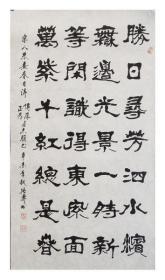 勝日尋芳泗水濱
無邊光景一時新
等閒識得東風面
萬紫千紅總是春
宋人朱熹春日詩